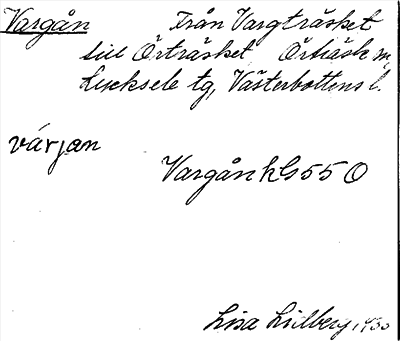 Vargån Från Vargträsket
till Örträsket. Örträsk m.
Lycksele tg, Västerbottens l.
várjan
Vargån kG55 O
Lisa Lidberg, 1930